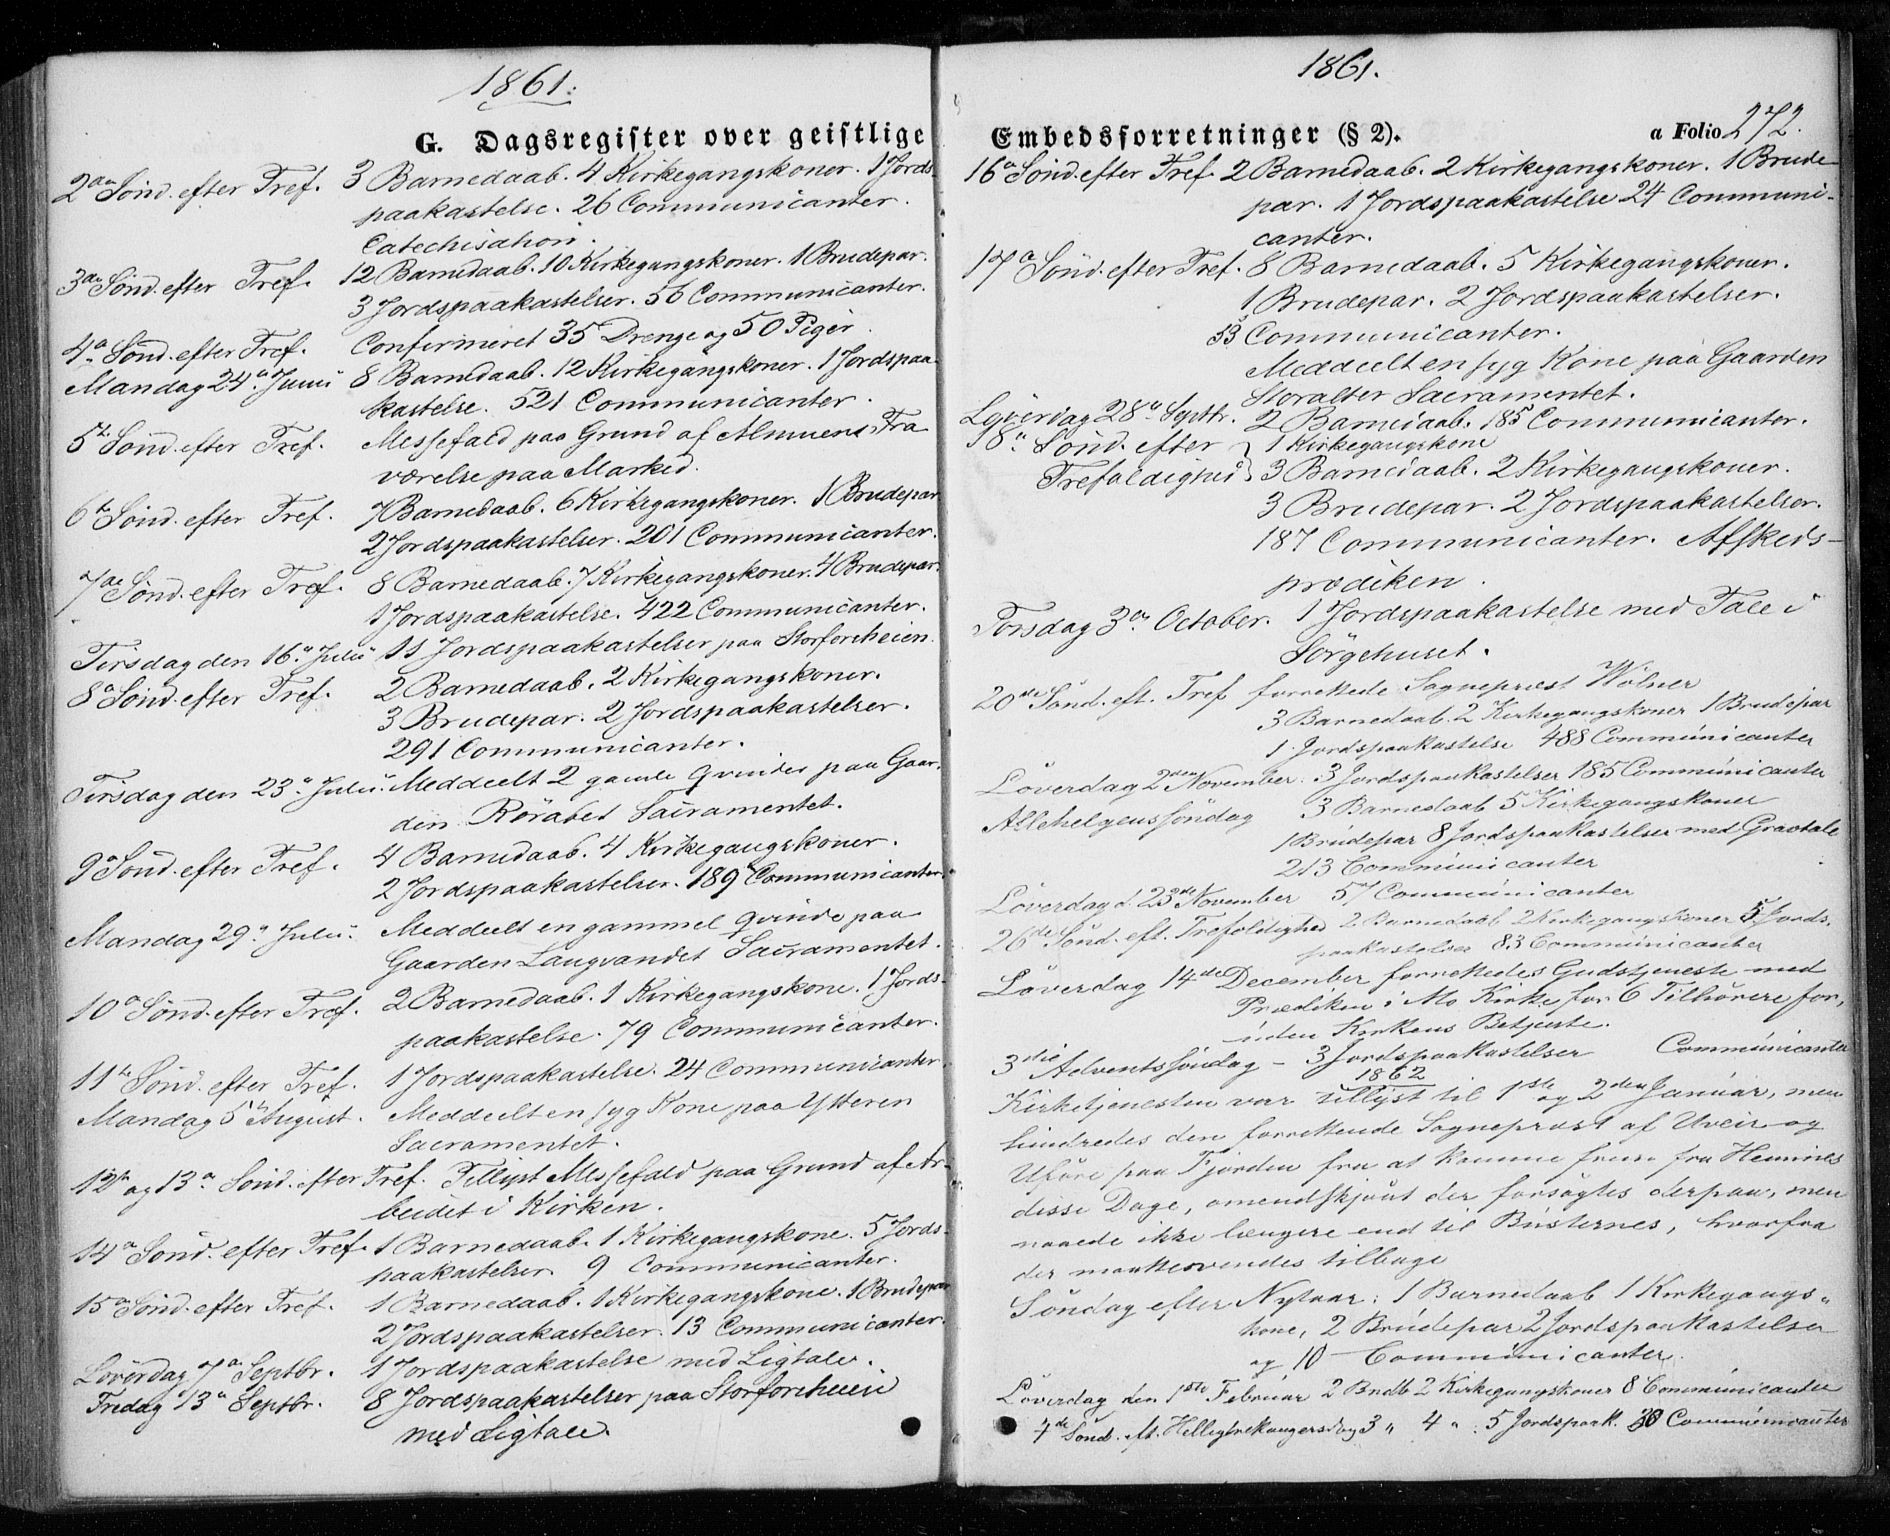 1861.
G. Dagsregister over geistlige
2den Sönd. efter Tref. 3 Barnedaab. 4 Kirkegangskoner. 1 Jords-
paakastelse. 26 Communicanter.
Catechisation.
3die Sönd. efter Tref. 12 Barnedaab. 10 Kirkegangskoner. 1 Brudepar.
3 Jordspaakastelser. 56 Communicanter.
4de Sönd. efter Tref. Confirmeret 35 Drenge og 50 Piger.
Mandag 24de Junii 8 Barnedaab. 12 Kirkegangskoner. 1 Jordspaa-
kastelse. 521 Communicanter.
5te Sönd. efter Tref. Messefald paa Grund af Almuens Fra-
værelse paa Marked.
6te Sönd. efter Tref. 7 Barnedaab. 6 Kirkegangskoner. 1 Brudepar
2 Jordspaakastelser. 201 Communicanter.
7de Sönd. efter Tref. 8 Barnedaab. 7 Kirkegangskoner. 4 Brudepar.
1 Jordspaakastelse. 422 Communicanter.
Tirsdag den 16de Julii 11 Jordspaakastelser paa Storforsheien.
8de Sönd. efter Tref. 2 Barnedaab. 2 Kirkegangskoner.
3 Brudepar. 2 Jordspaakastelser.
291 Communicanter.
Tirsdag den 23de Julii. Meddeelt 2 gamle Qvinder paa Gaar-
den Röråbet Sacramentet.
9de Sönd. efter Tref. 4 Barnedaab. 4 Kirkegangskoner.
2 Jordspaakastelser. 189 Communicanter.
Mandag 29de Julii. Meddeelt en gammel Qvinde paa
Gaarden Langvandet Sacramentet.
10de Sönd. efter Tref. 2 Barnedaab. 1 Kirkegangskone. 1 Jords-
paakastelse. 79 Communicanter.
11te Sönd. efter Tref. 1 Jordspaakastelse. 24 Communicanter.
Mandag 5te August. Meddeelt en syg Kone paa Ytteren
Sacramentet.
12te og 13de Sönd. efter Tref. Tillyst Messefald paa Grund af Ar-
beidet i Kirken.
14de Sönd. efter Tref. 1 Barnedaab. 1 Kirkegangskone. 5 Jords-
paakastelser. 9 Communicanter.
15de Sönd. efter Tref. 1 Barnedaab. 1 Kirkegangskone. 1 Brudepar
2 Jordspaakastelser. 13 Communicanter.
Löverdag 7de Septbr. 1 Jordspaakastelse med Ligtale.
Fredag 13de Septbr. 8 Jordspaakastelser paa Storforsheien
med Ligtale.
1861.
Embedsforretninger (§ 2). a Folio 272.
16de Sönd. efter Tref. 2 Barnedaab. 2 Kirkegangskoner. 1 Brude-
par. 1 Jordspaakastelse 24 Communi-
canter.
17de Sönd. efter Tref. 8 Barnedaab. 5 Kirkegangskoner.
1 Brudepar. 2 Jordspaakastelser.
53 Communicanter.
Meddeelt en syg Kone paa Gaarden
Storalter Sacramentet.
Löverdag 28de Septbr. 2 Barnedaab. 185 Communicanter.
18de Sönd. efter 1 Kirkegangskone
Trefoldighed 3 Barnedaab. 2 Kirkegangskoner.
3 Brudepar. 2 Jordspaakastelser.
187 Communicanter. Afskeds-
prædiken.
Torsdag 3die October. 1 Jordspaakastelse med Tale i
Sörgehuset.
20de Sönd. eft. Tref forrettede Sognepræst Wölner
3 Barnedaab. 2 Kirkegangskoner 1 Brudepar
1 Jordspaakastelse 488 Communicanter
Löverdag 2den November. 3 Jordspaakastelser 185 Communicanter
Allehelgenssöndag 3 Barnedaab 5 Kirkegangskoner
1 Brudepar 8 Jordspaakastelser med Gravtale
213 Communicanter
Löverdag d. 23de November 57 Communicanter
26de Sönd. eft. Trefoldighed 2 Barnedaab 2 Kirkegangskoner 5 Jords-
paakastelser 83 Communicanter
Löverdag 14de December forrettedes Gudstjeneste med
Prædiken i Mo Kirke for 6 Tilhörere for-
uden Kirkens Betjente.
3die Adventssöndag - 3 Jordspaakastelser Communicanter
1862
Kirketjenesten var tillyst til 1ste og 2den Januar, men
hindredes den forrettende Sognepræst af Uveir og
Uföre paa Fjorden fra at komme frem fra Hemnes
disse Dage, omendskjönt der forsögtes derpaa, men
naaede ikke længere end til Bústernes, hvorfra
der maatte vendes tilbage
Söndag efter Nytaar: 1 Barnedaab 1 Kirkegangs-
kone, 2 Brudepar 2 Jordspaakastelser
og 10 Communicanter.
Löverdag den 1ste Februar 2 Bndb 2 Kirkegangskoner 8 Communicanter
4de Sönd. eft. Helligtrekongersdag 3 " 4 " 5 Jordspaak. 20 Communicanter